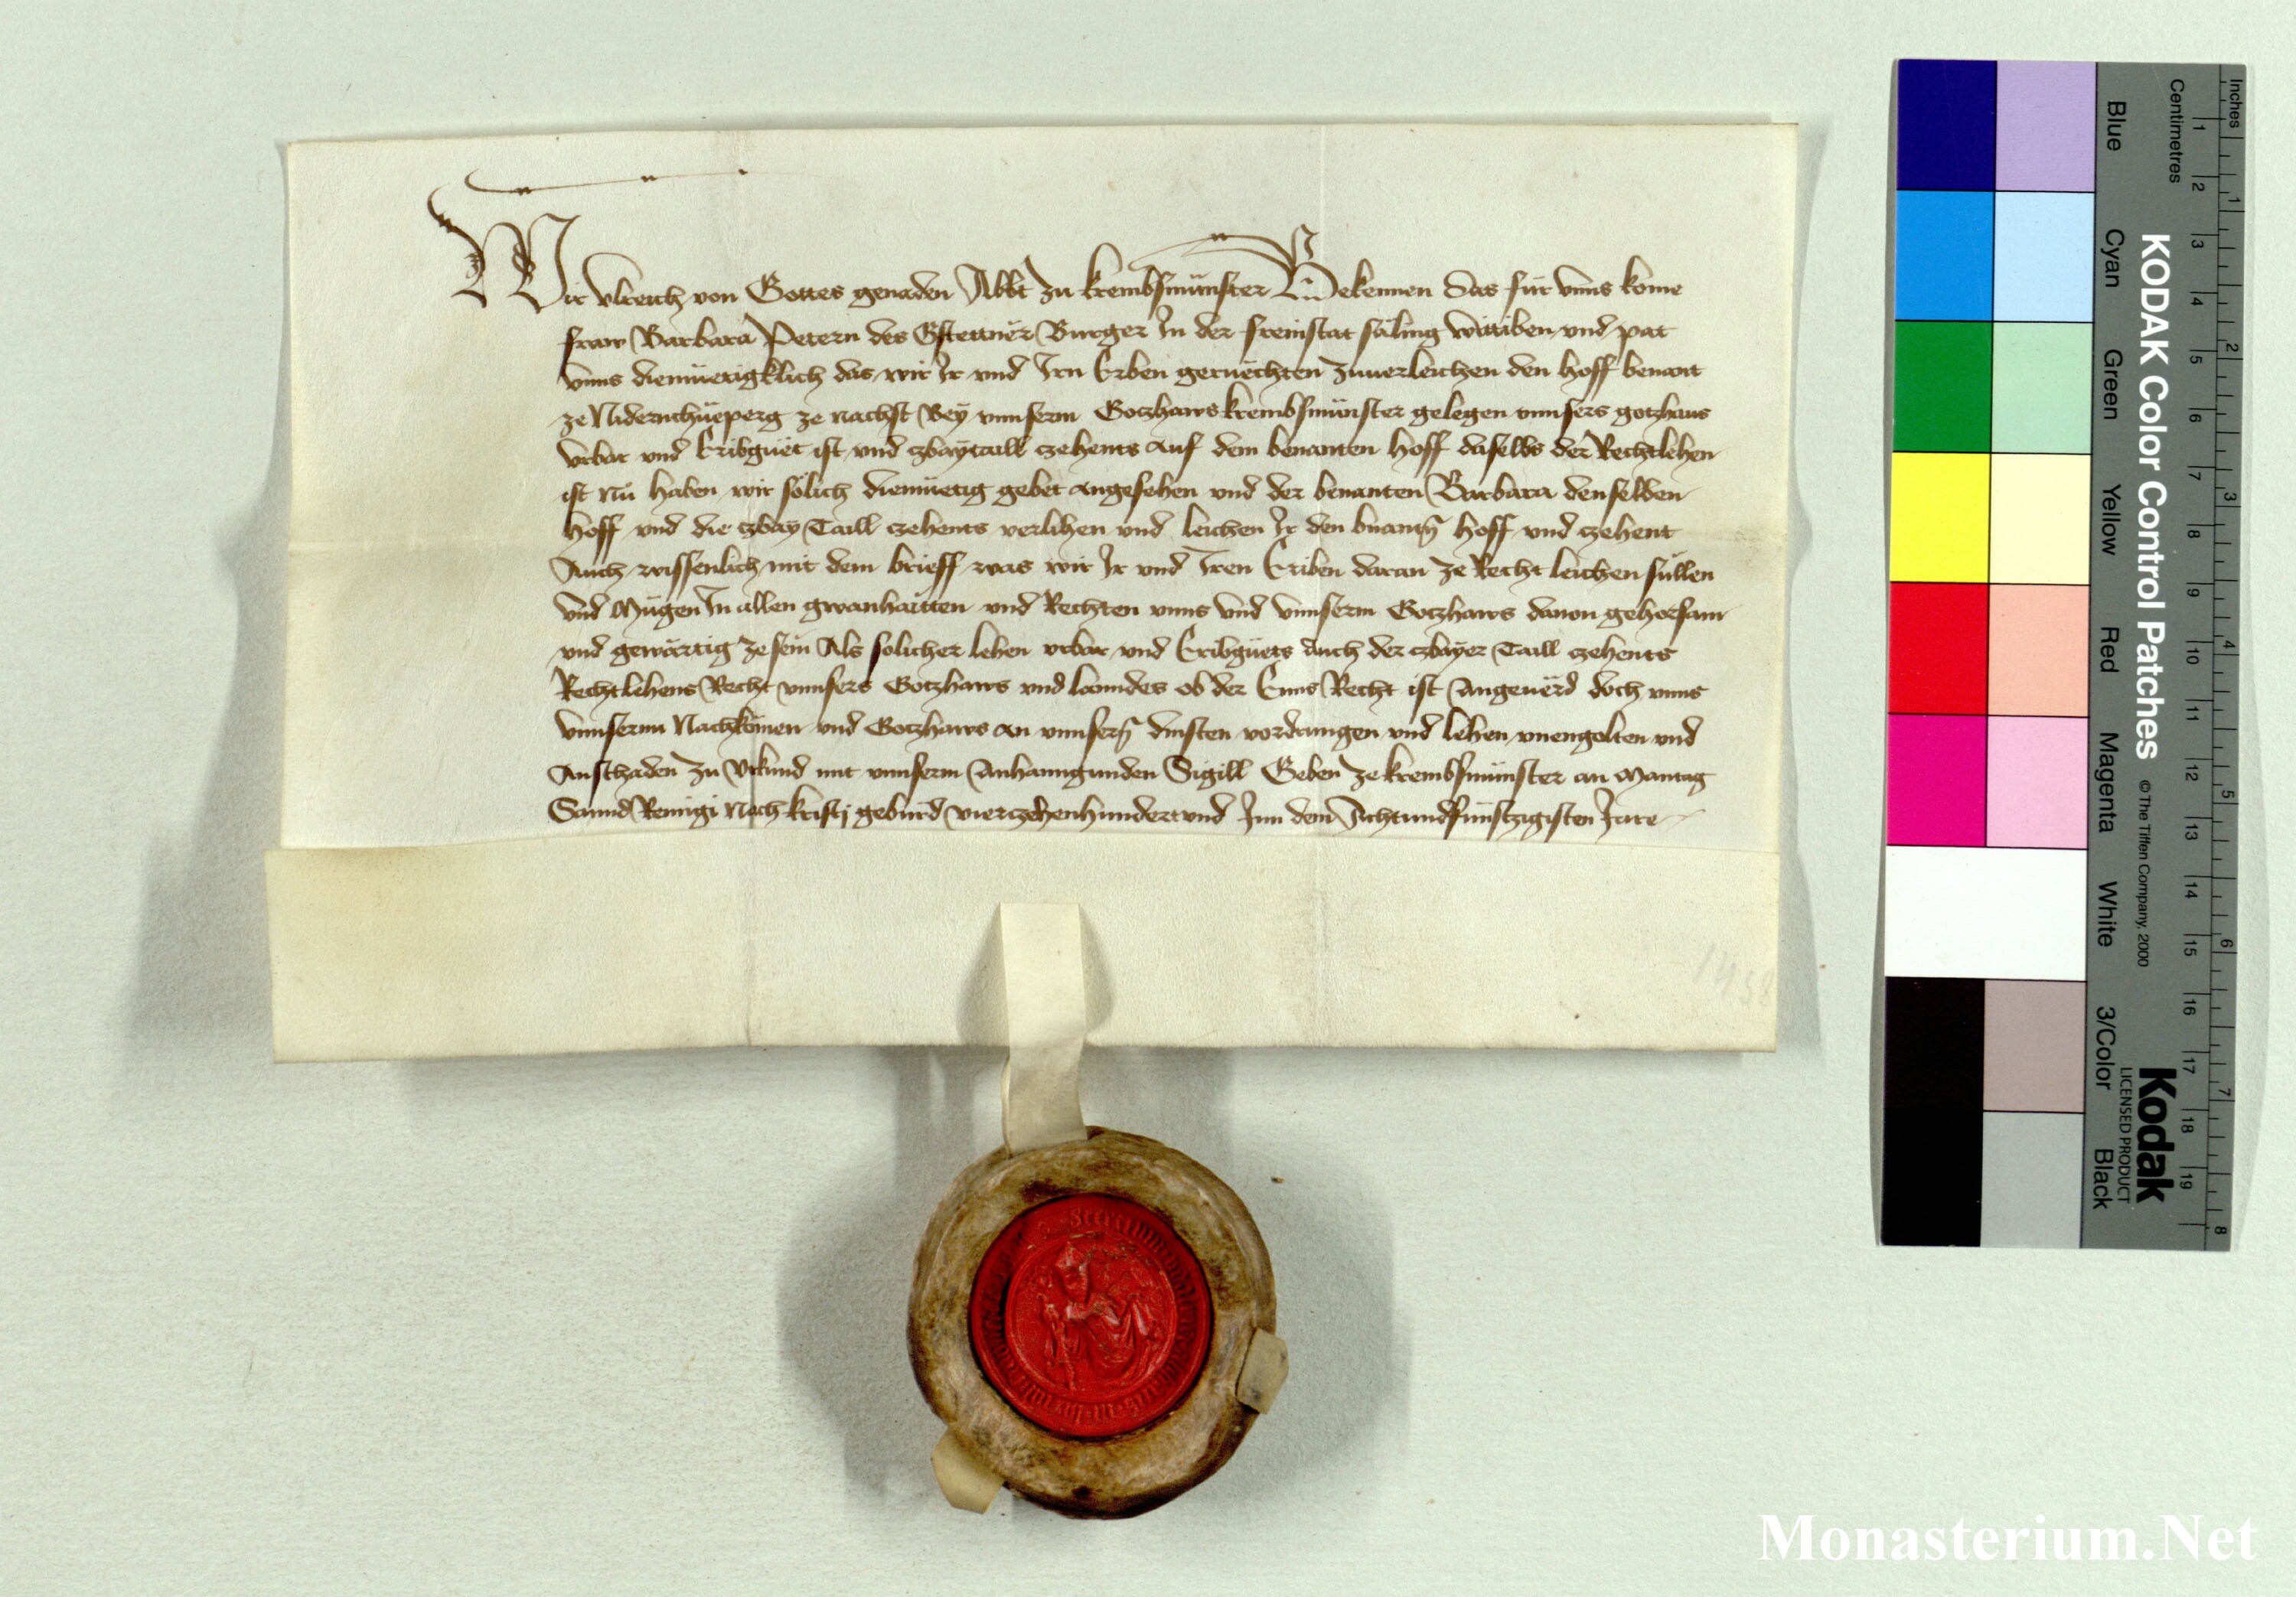 Wir Ulreich von Gottes genaden Abbt zu krembsmünster Bekennen das für vnns kome
fraw Barbara Petern des Gstettner Burger In der freinstat säling wittiben vnd pat
vnns diemüetigklich das wir Ir vnd Irn Erben geruechten zuuerleichen den hoff benant
ze Nidernchüeperg ze nachst Bey vnnserm Gotzhaws krembsmünster gelegen vnnsers gotzhaus
vrbar vnd Eribguet ist vnd czbaytaill czehents auf dem benanten hoff daselbs der Rechtlehen
ist Nu haben wir sölich diemüetig gebet angesehen vnd der benanten Barbara denselben
hoff vnd die czbay Taill czehents verlihen vnd leichen Ir den hoff vnd czehent
Auch wissenlich mit dem brieff was wir Ir vnd Iren Eriben daran ze Recht leichen süllen
vnd Mügen In allen gwanhaitten vnd Rechten vnns vnd vnnserm Gotzhaws dauon gehorsam
vnd gewärtig ze sein Als solicher lehen vrbar vnd Eribguets auch der czbayer Taill czehents
Rechtlehens Recht vnnsers Gotzhaws vnd lanndes ob der Enns Recht ist Angeuerd doch vnns
vnnserm Nachkömen vnd Gotzhaws an vnnsern dinsten vordrungen vnd lehen vnengolten vnd
Anschaden zu Vrkund mit vnnserm Anhanngunden Sigill Geben ze krembsmünster an Mantag
Sannd Remigi Nach kristj geburd vierczehenhundert vnd Inn dem Achtundfünftzigisten Jare
1458
KODAK Color Control Patches © The Tiffen Company, 2000 Kodak
LICENSED PRODUCT
Inches 1 2 3 4 5 6 7 8
Centimetres 1 2 3 4 5 6 7 8 9 10 11 12 13 14 15 16 17 18 19
Blue Cyan Green Yellow Red Magenta White 3/Color Black
Monasterium.Net